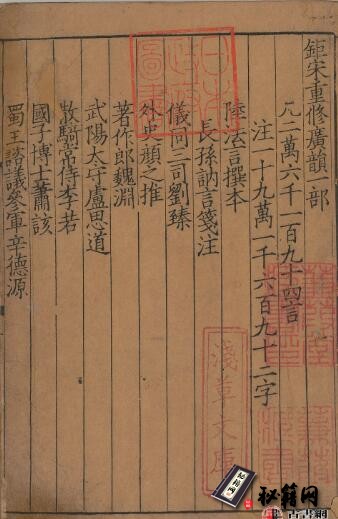 鉅宋重修廣韻一部
凡二萬六千一百九十四言
注一十九萬一千六百九十二字
陸法言撰本
長孫訥言箋注
儀同三司劉臻
外史顏之推
著作郎魏淵
武陽太守盧思道
散騎常侍李若
國子博士蕭該
蜀王諮議參軍辛德源
淺草文庫
秘籍网